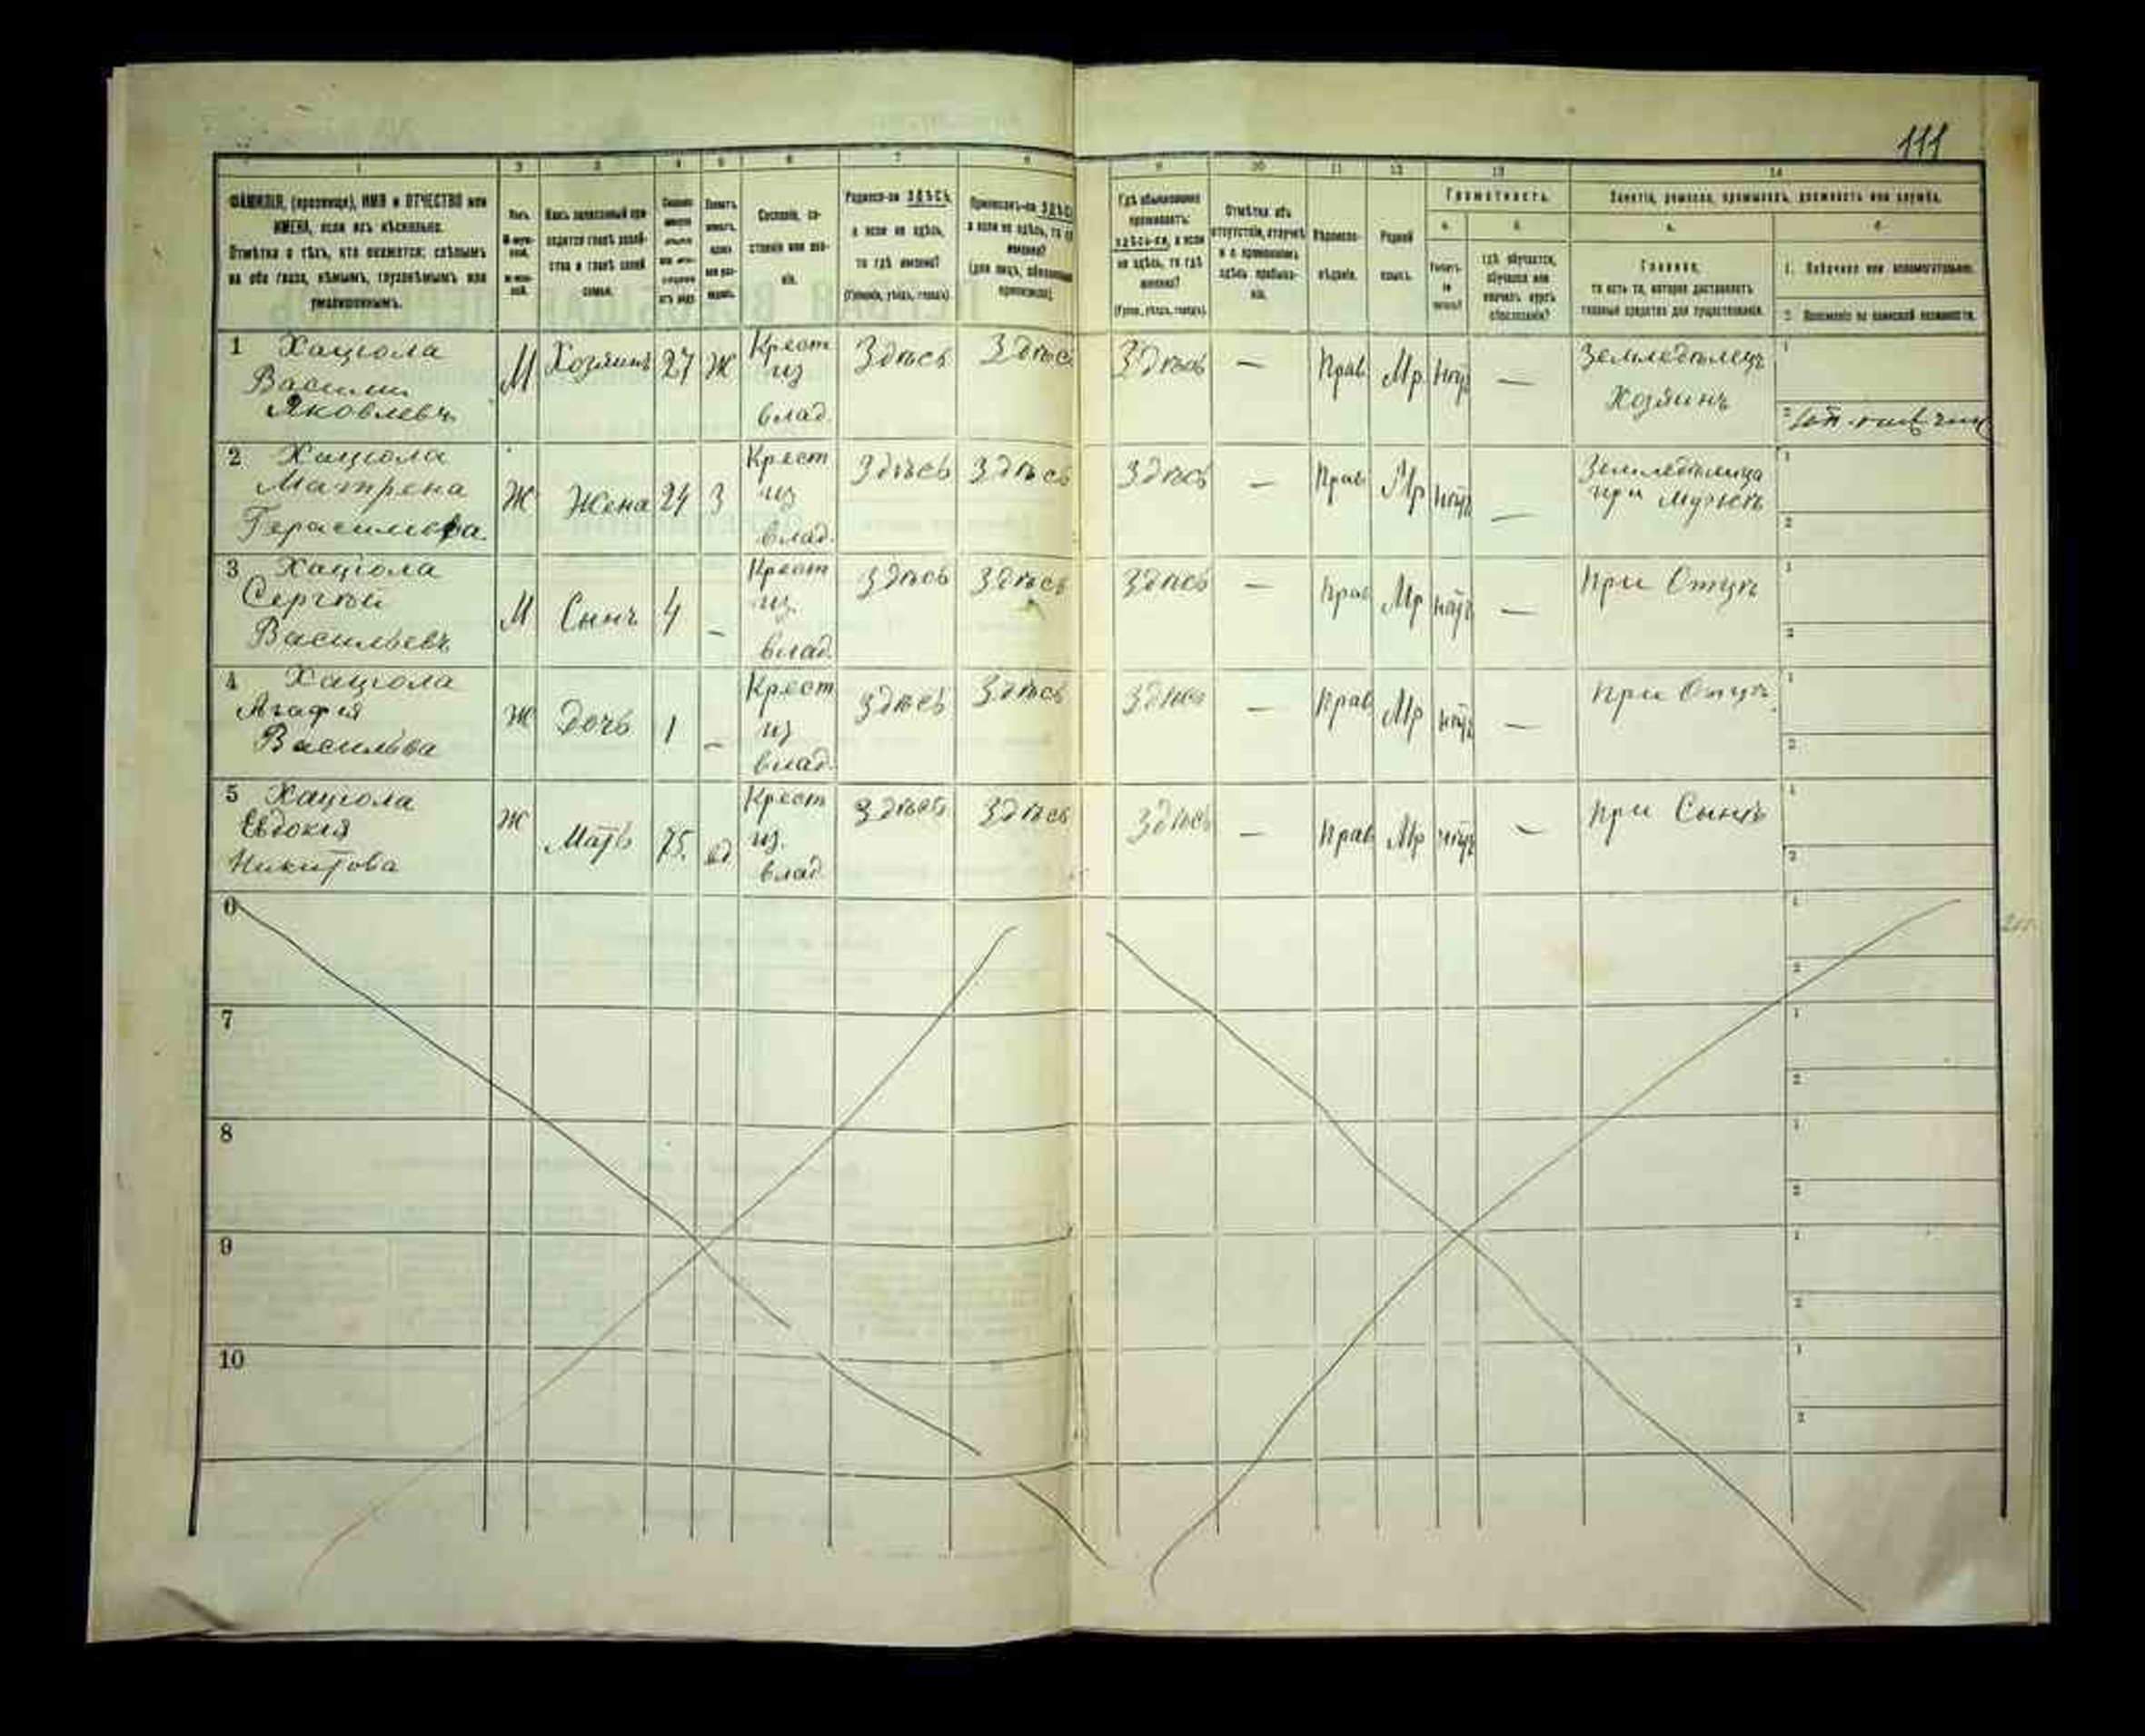 111
1 2 3 4 5 6 7 8 9 10 11 12 13 14
ФАМИЛІЯ, (прозвище), ИМЯ и ОТЧЕСТВО или
ИМЕНА, если ихъ нѣсколько.
Отмѣтка о тѣхъ, кто окажется: слѣпымъ
на оба глаза, нѣмымъ, глухонѣмымъ или
умалишеннымъ.
Полъ.
Какъ записанный при-
ходится главѣ хозяй-
ства и главѣ своей
семьи.
Сословіе, со-
стояніе или зва-
ніе.
Родился-ли ЗДѢСЬ,
а если не здѣсь,
то гдѣ именно?
(Губернія, уѣздъ, городъ).
Приписанъ-ли ЗДѢСЬ,
а если не здѣсь, то гдѣ
именно?
Гдѣ обыкновенно
проживаетъ:
здѣсь-ли, а если
не здѣсь, то гдѣ
именно?
(Губер., уѣздъ, городъ).
Отмѣтка объ
отсутствіи, отлучкѣ
и о временномъ
здѣсь пребыва-
ніи.
Вѣроиспо-
вѣданіе.
Родной
языкъ.
Грамотность.
а. б.
Умѣетъ
ли
читать?
гдѣ обучается,
обучался или
кончилъ курсъ
образованія?
Занятіе, ремесло, промыселъ, должность или служба.
а. б.
Главное,
то есть то, которое доставляетъ
главныя средства для существованія.
1. Побочное или вспомогательное.
2. Положеніе по воинской повинности.
1 Хацюла
Василий
Яковлевъ
М Хозяинъ 27 Ж
Крест
из
влад.
Здѣсь Здѣсь Здѣсь — Прав Мр нѣтъ —
Земледѣлецъ
Хозяинъ
1
2
2 Хацюла
Матрена
Герасимова
Ж Жена 24 З
Крест
из
влад.
Здѣсь Здѣсь Здѣсь — Прав Мр нѣтъ —
Земледѣлица
при мужѣ
1
2
3 Хацюла
Сергѣй
Васильевъ
М Сынъ 4 —
Крест
из.
влад.
Здѣсь Здѣсь Здѣсь — Прав Мр нѣтъ —
при Отцѣ
1
2
4 Хацюла
Агафія
Васильва
Ж Дочь 1 —
Крест
из
влад.
Здѣсь Здѣсь Здѣсь — Прав Мр нѣтъ —
при Отцѣ
1
2
5 Хацюла
Евдокія
Никитова
Ж Мать 75. вд
Крест
из.
влад
Здѣсь Здѣсь Здѣсь — Прав Мр нѣтъ —
при Сынѣ
1
2
6
1
2
7
1
2
8
1
2
9
1
2
10
1
2